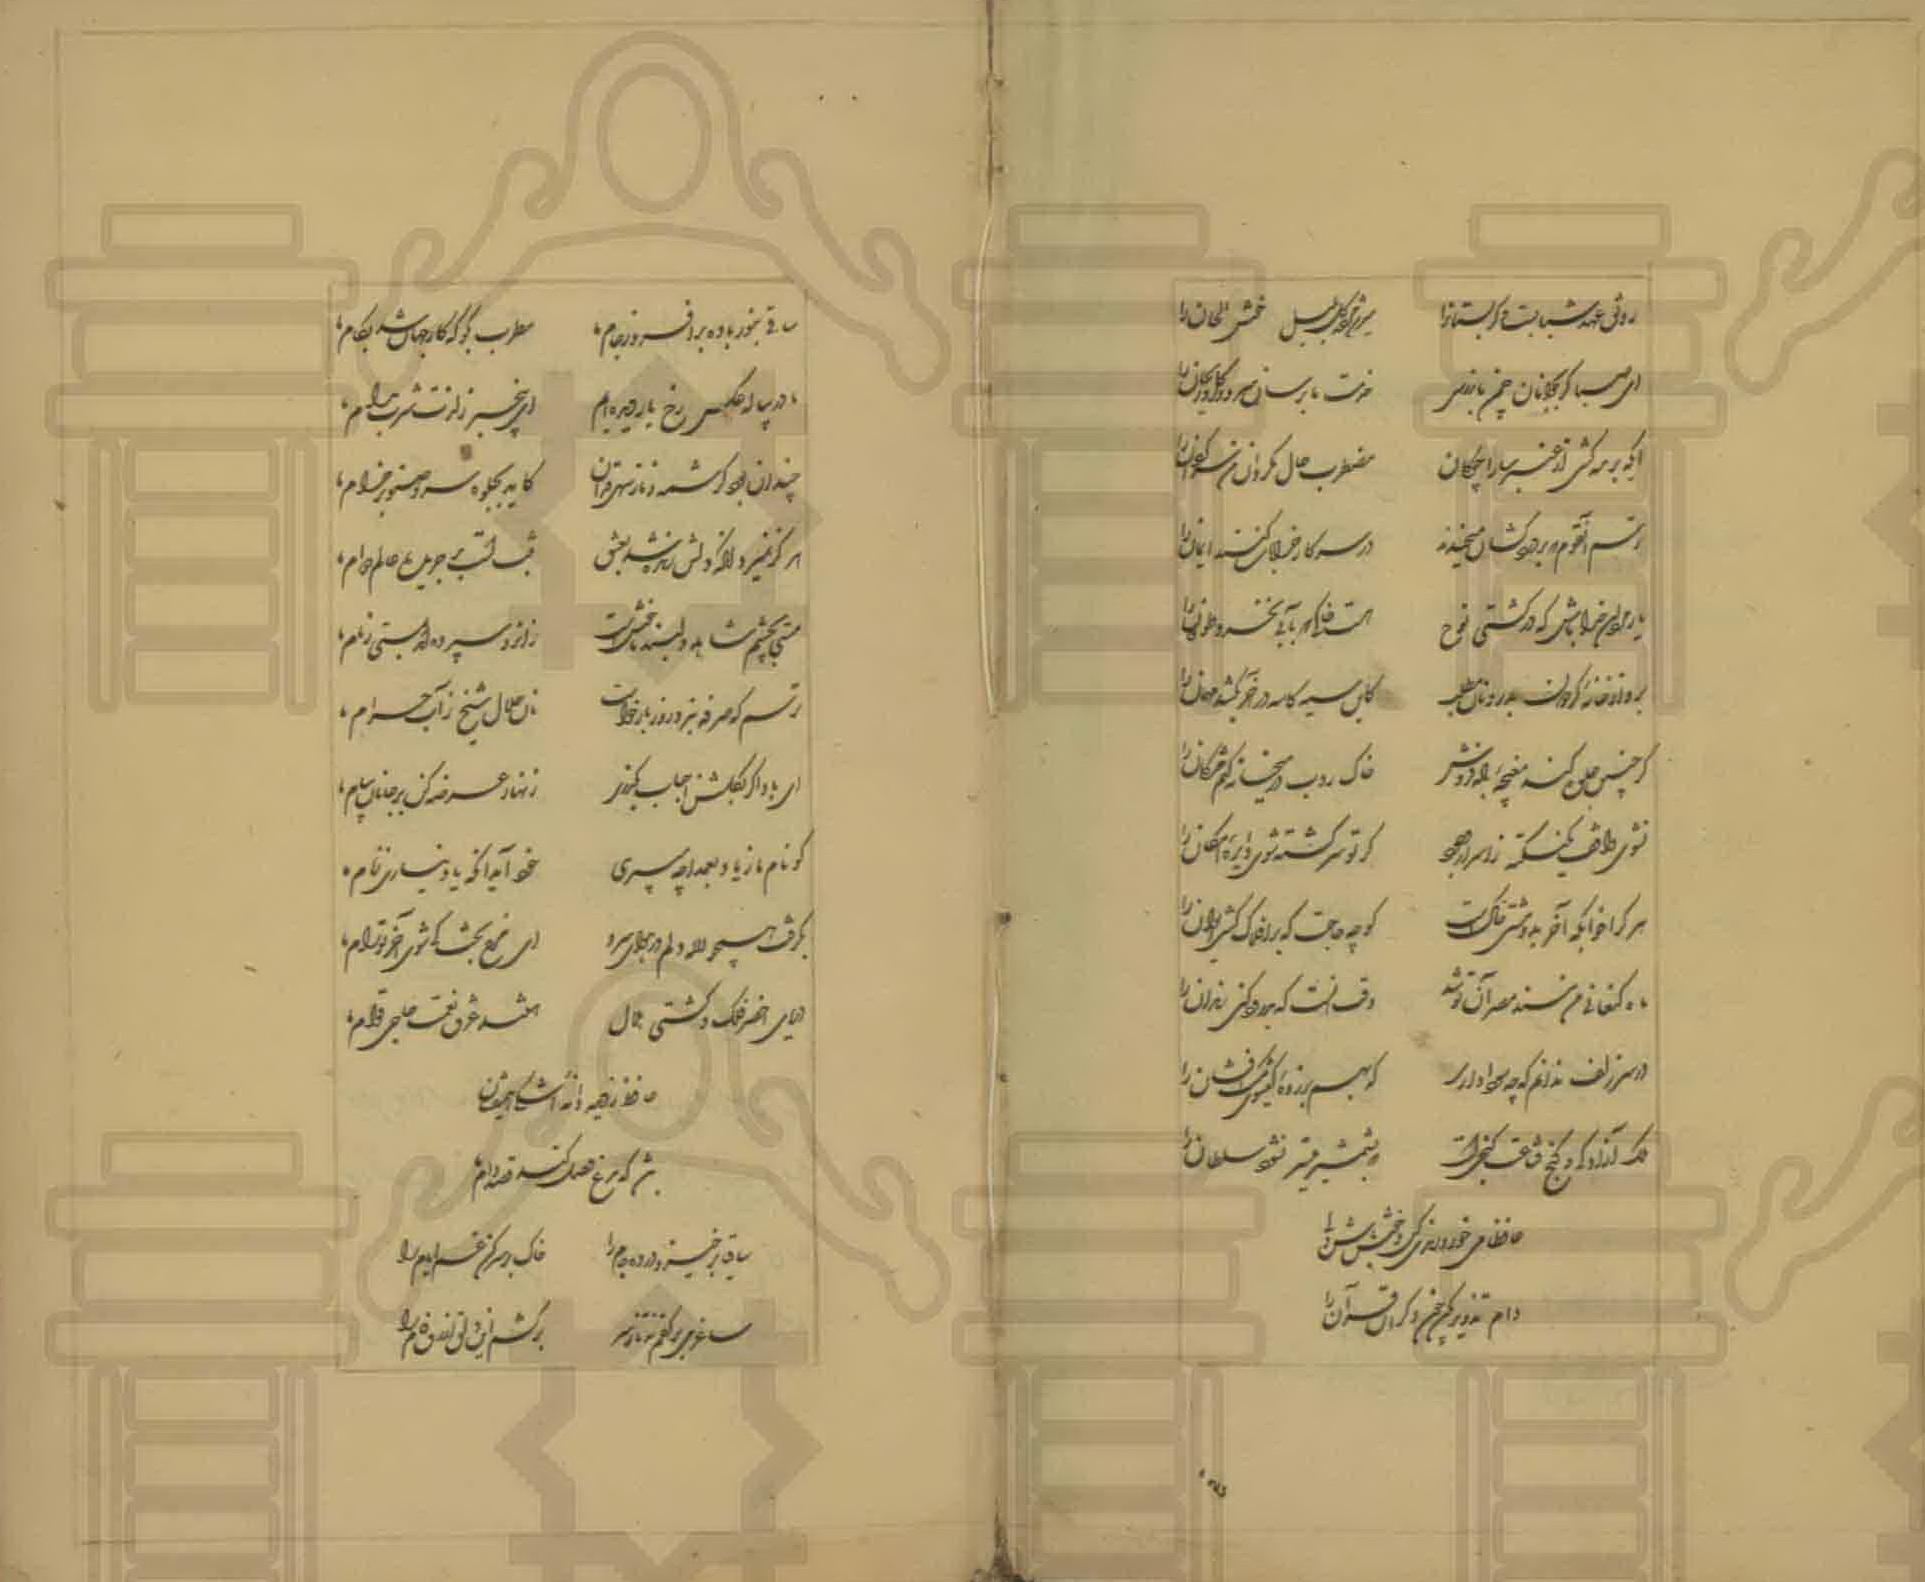 رونق عهد شبابست دکر بستانرا میرسد مژده کل بلبل خوش الحان را
ای صبا کر بجوانان چمن باز رسی خدمت ما برسان سرو و کل و ریحان را
ای که بر مه کشی از عنبر سارا چوکان مضطرب حال مکردان من سرکردان را
ترسم آنقوم که بر دردکشان میخندند در سر کار خرابات کنند ایمان را
یار مردان خدا باش که در کشتی نوح هست خاکی که بآبی نخرد طوفان را
برو از خانه کردون بدر و نان مطلب کاین سیه کاسه در آخر بکشد مهمان را
کر چنین جلوه کند مغبچه باده فروش خاک روب در میخانه کنم مژکان را
نشوی واقف یکنکته ز اسرار وجود کر تو سرکشته شوی دایره امکان را
هر کرا خوابکه آخر بدو مشتی خاکست کو چه حاجت که بر افلاک کشی ایوان را
ماه کنعانی من مسند مصر آن تو شد وقت آنست که بدرود کنی زندان را
در سر زلف ندانم که چه سودا داری که بهم بر زده کیسوی مشک افشان را
ملک آزادکی و کنج قناعت کنجیست که بشمشیر میسر نشود سلطان را
حافظا می خور و رندی کن و خوش باش ولی
دام تزویر مکن چون دکران قرآن را
ساقی بنور باده بر افروز جام ما مطرب بکو که کار جهان شد بکام ما
ما در پیاله عکس رخ یار دیده‌ایم ای بیخبر ز لذت شرب مدام ما
چندان بود کرشمه و ناز سهی قدان کاید بجلوه سرو صنوبر خرام ما
هرکز نمیرد آنکه دلش زنده شد بعشق ثبت است بر جریده عالم دوام ما
مستی بچشم شاهد دلبند ما خوش است زانرو سپرده‌اند بمستی زمام ما
ترسم که صرفه نبرد روز بازخواست نان حلال شیخ ز آب حرام ما
ای باد اکر بکلشن احباب بکذری زنهار عرضه کن بر جانان پیام ما
کو نام ما ز یاد بعمدا چه میبری خود آید آنکه یاد نیاری ز نام ما
بکرفت همچو لاله دلم در هوای سرو ای مرغ بخت کی شوی آخر تو رام ما
دریای اخضر فلک و کشتی هلال هستند غرق نعمت حاجی قوام ما
حافظ ز دیده دانه اشکی همی‌فشان
باشد که مرغ وصل کند قصد دام ما
ساقیا برخیز و درده جام را خاک بر سر کن غم ایام را
ساغر می بر کفم نه تا ز سر برکشم این دلق ازرق فام را